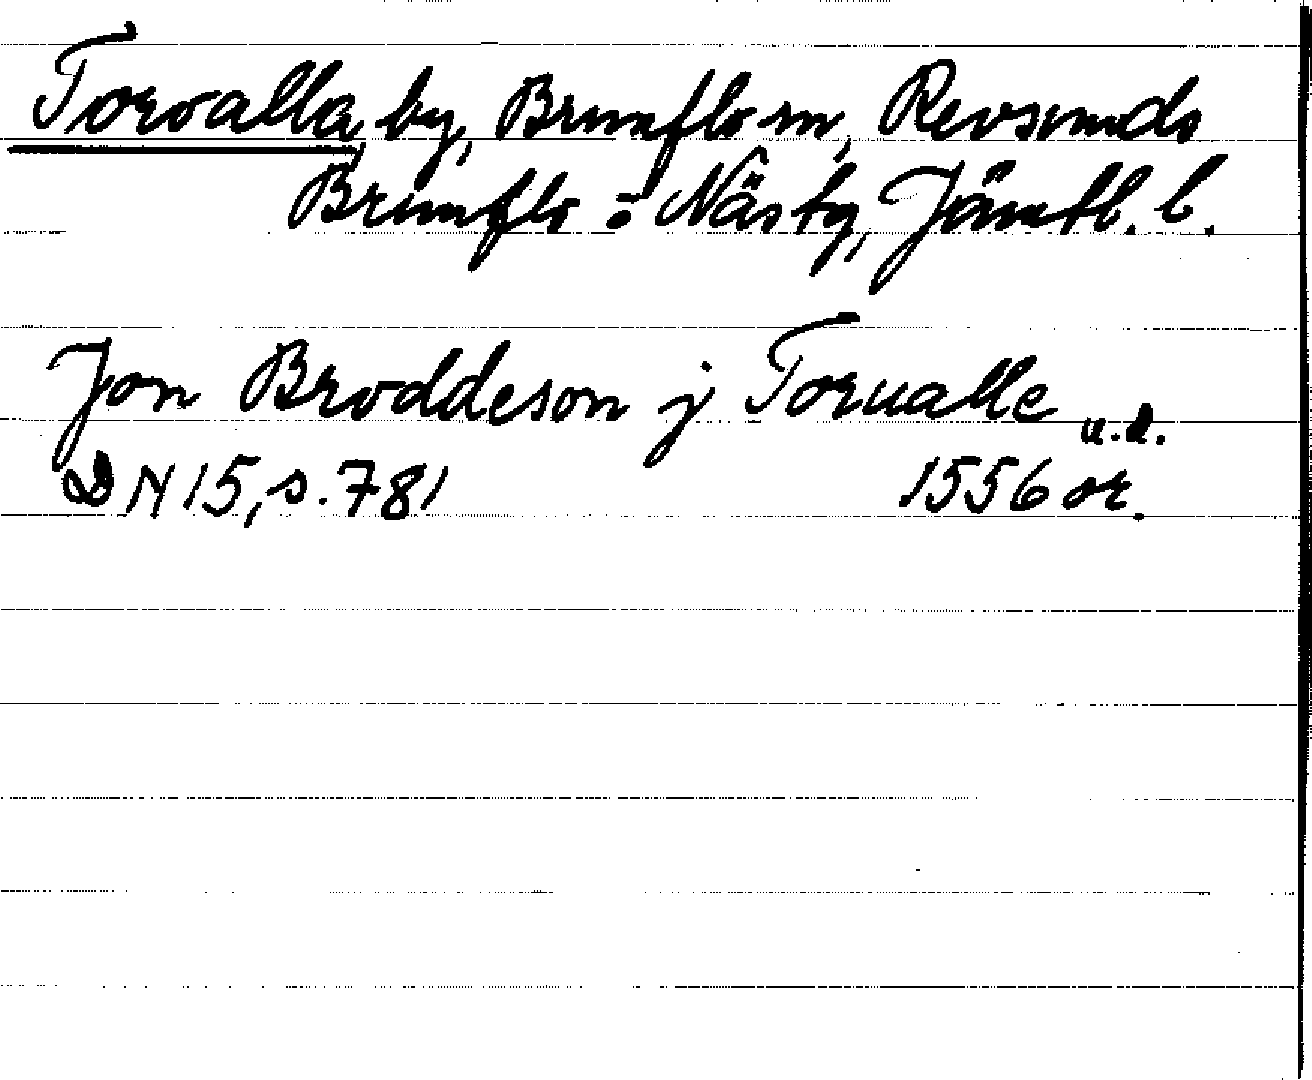 Torvalla by, Brunflo sn, Revsunds
Brunflo o Näs tg, Jämtl. l.
Jon Broddeson j Torualle u.d.
DN 15, s. 781 1556 or.